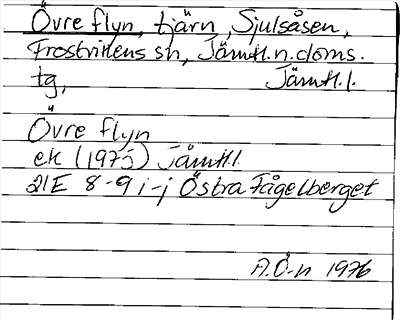 Övre flyn, tjärn, Sjulsåsen,
Frostvikens sn, Jämtl.n.doms.
tg, Jämtl.l.
Övre flyn
ek (1975) Jämtl.l.
21E 8-9 i-j Östra Fågelberget
A.Ö-n 1976